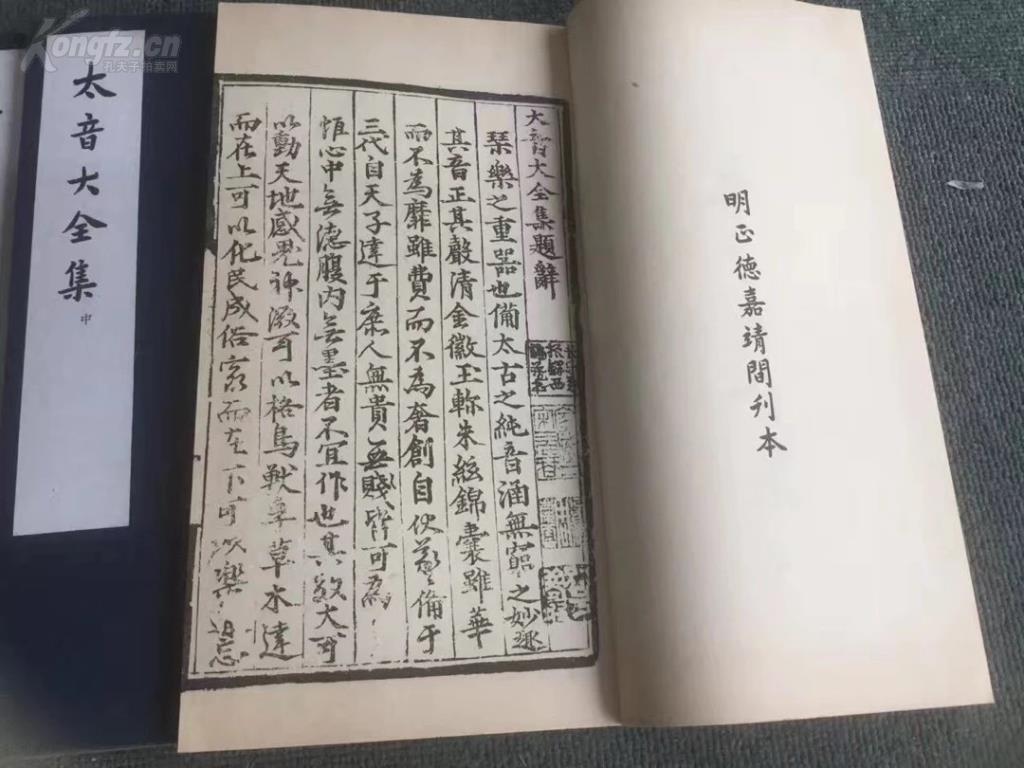 Kongfz.cn
孔夫子拍卖网
明正德嘉靖間刊本
太音大全集題辭
琹樂之重器也備太古之純音涵無窮之妙趣
其音正其聲清金徽玉軫朱絃錦囊雖華
而不為靡雖費而不為奢創自伏羲備于
三代自天子達于庶人無貴無賤皆可為
惟心中無德腹内無墨者不宜作也其效大可
以動天地感鬼神激可以格鳥獣草木達
而在上可以化民成俗窮而在下可以樂道忘
太音大全集
中